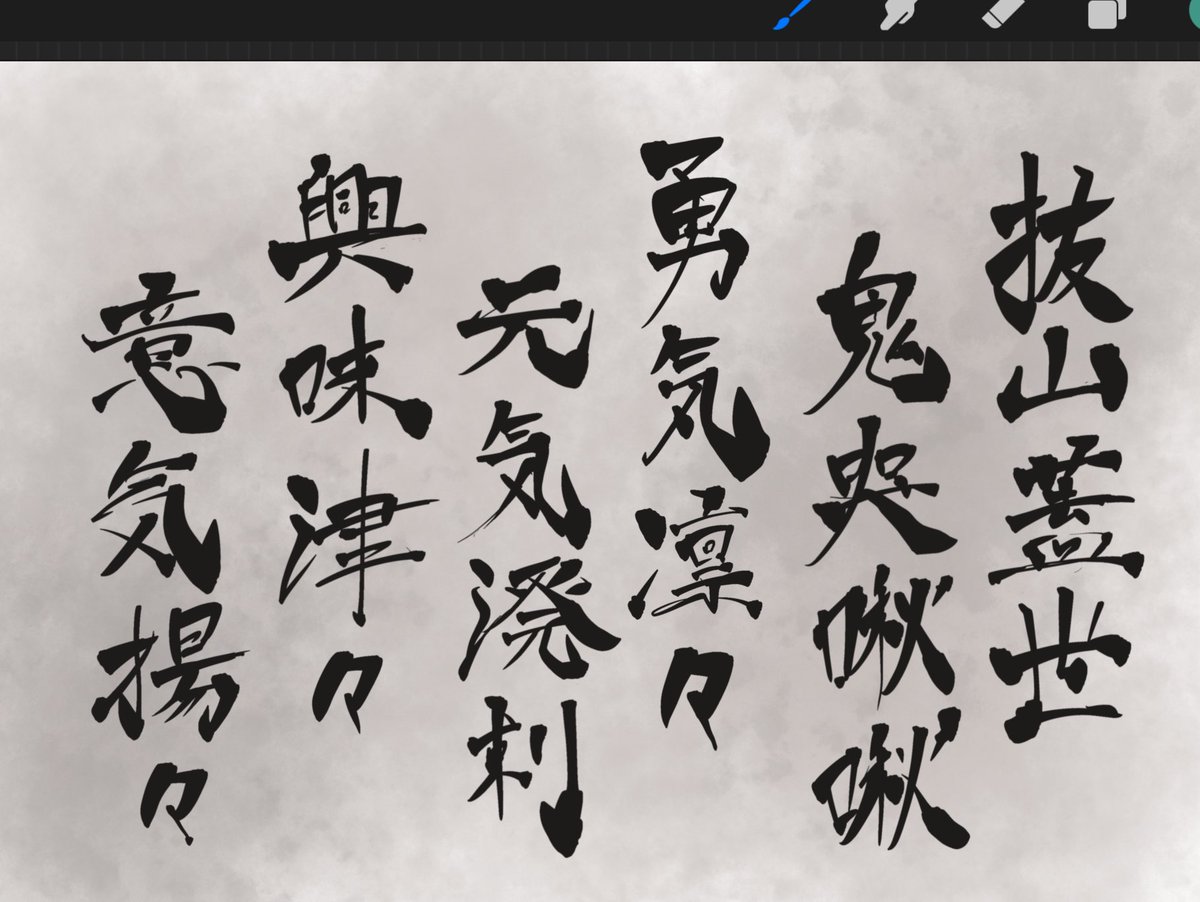 抜山蓋世
鬼哭啾啾
勇気凛々
元気溌剌
興味津々
意気揚々